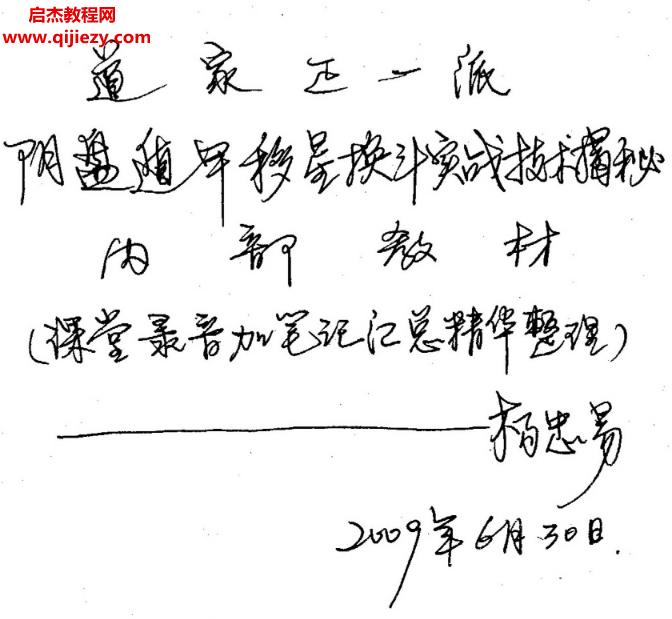 启杰教程网
www.qijiezy.com
道家正一派
阴盘遁甲移星换斗实战技术揭秘
内部教材
(课堂录音加笔记汇总精华整理)
——杨忠易
2009年6月30日.